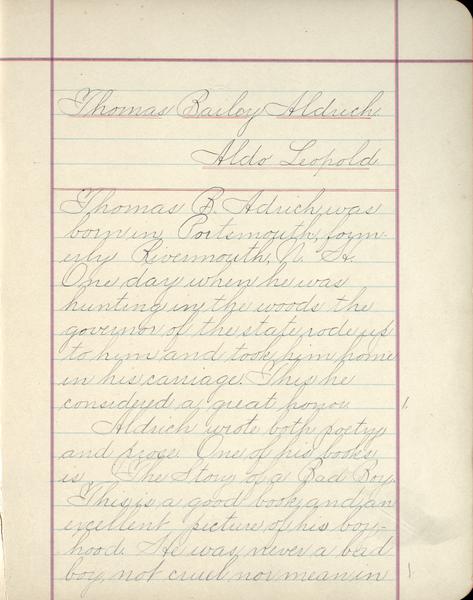 Thomas Bailey Aldrich.
Aldo Leopold
Thomas B. Adrich was
born in Portsmouth, form-
erly Rivermouth, N. H.
One day when he was
hunting in the woods the
governor of the state rode up
to him and took him home
in his carriage. This he
considered a great honor. 1.
Aldrich wrote both poetry
and prose. One of his books
is "The Story of a Bad Boy.
This is a good book and an
excellent picture of his boy-
hood. He was never a bad
boy, not cruel nor mean in 1